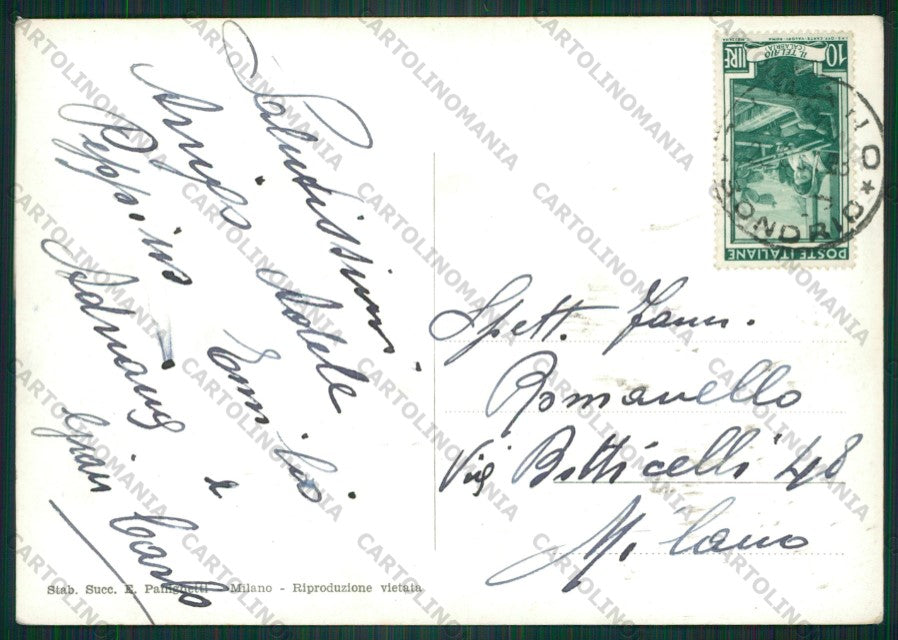 Salutissimi
Luigia Adele
Emilio
Peppino
Adriana e Carlo
Gian
Spett. Fam.
Romanello
Via Botticelli 48
Milano
10 LIRE
IL TELAIO
CALABRIA
POSTE ITALIANE
SONDRIO
Stab. Succ. E. Panighetti - Milano - Riproduzione vietata
CARTOLINOMANIA